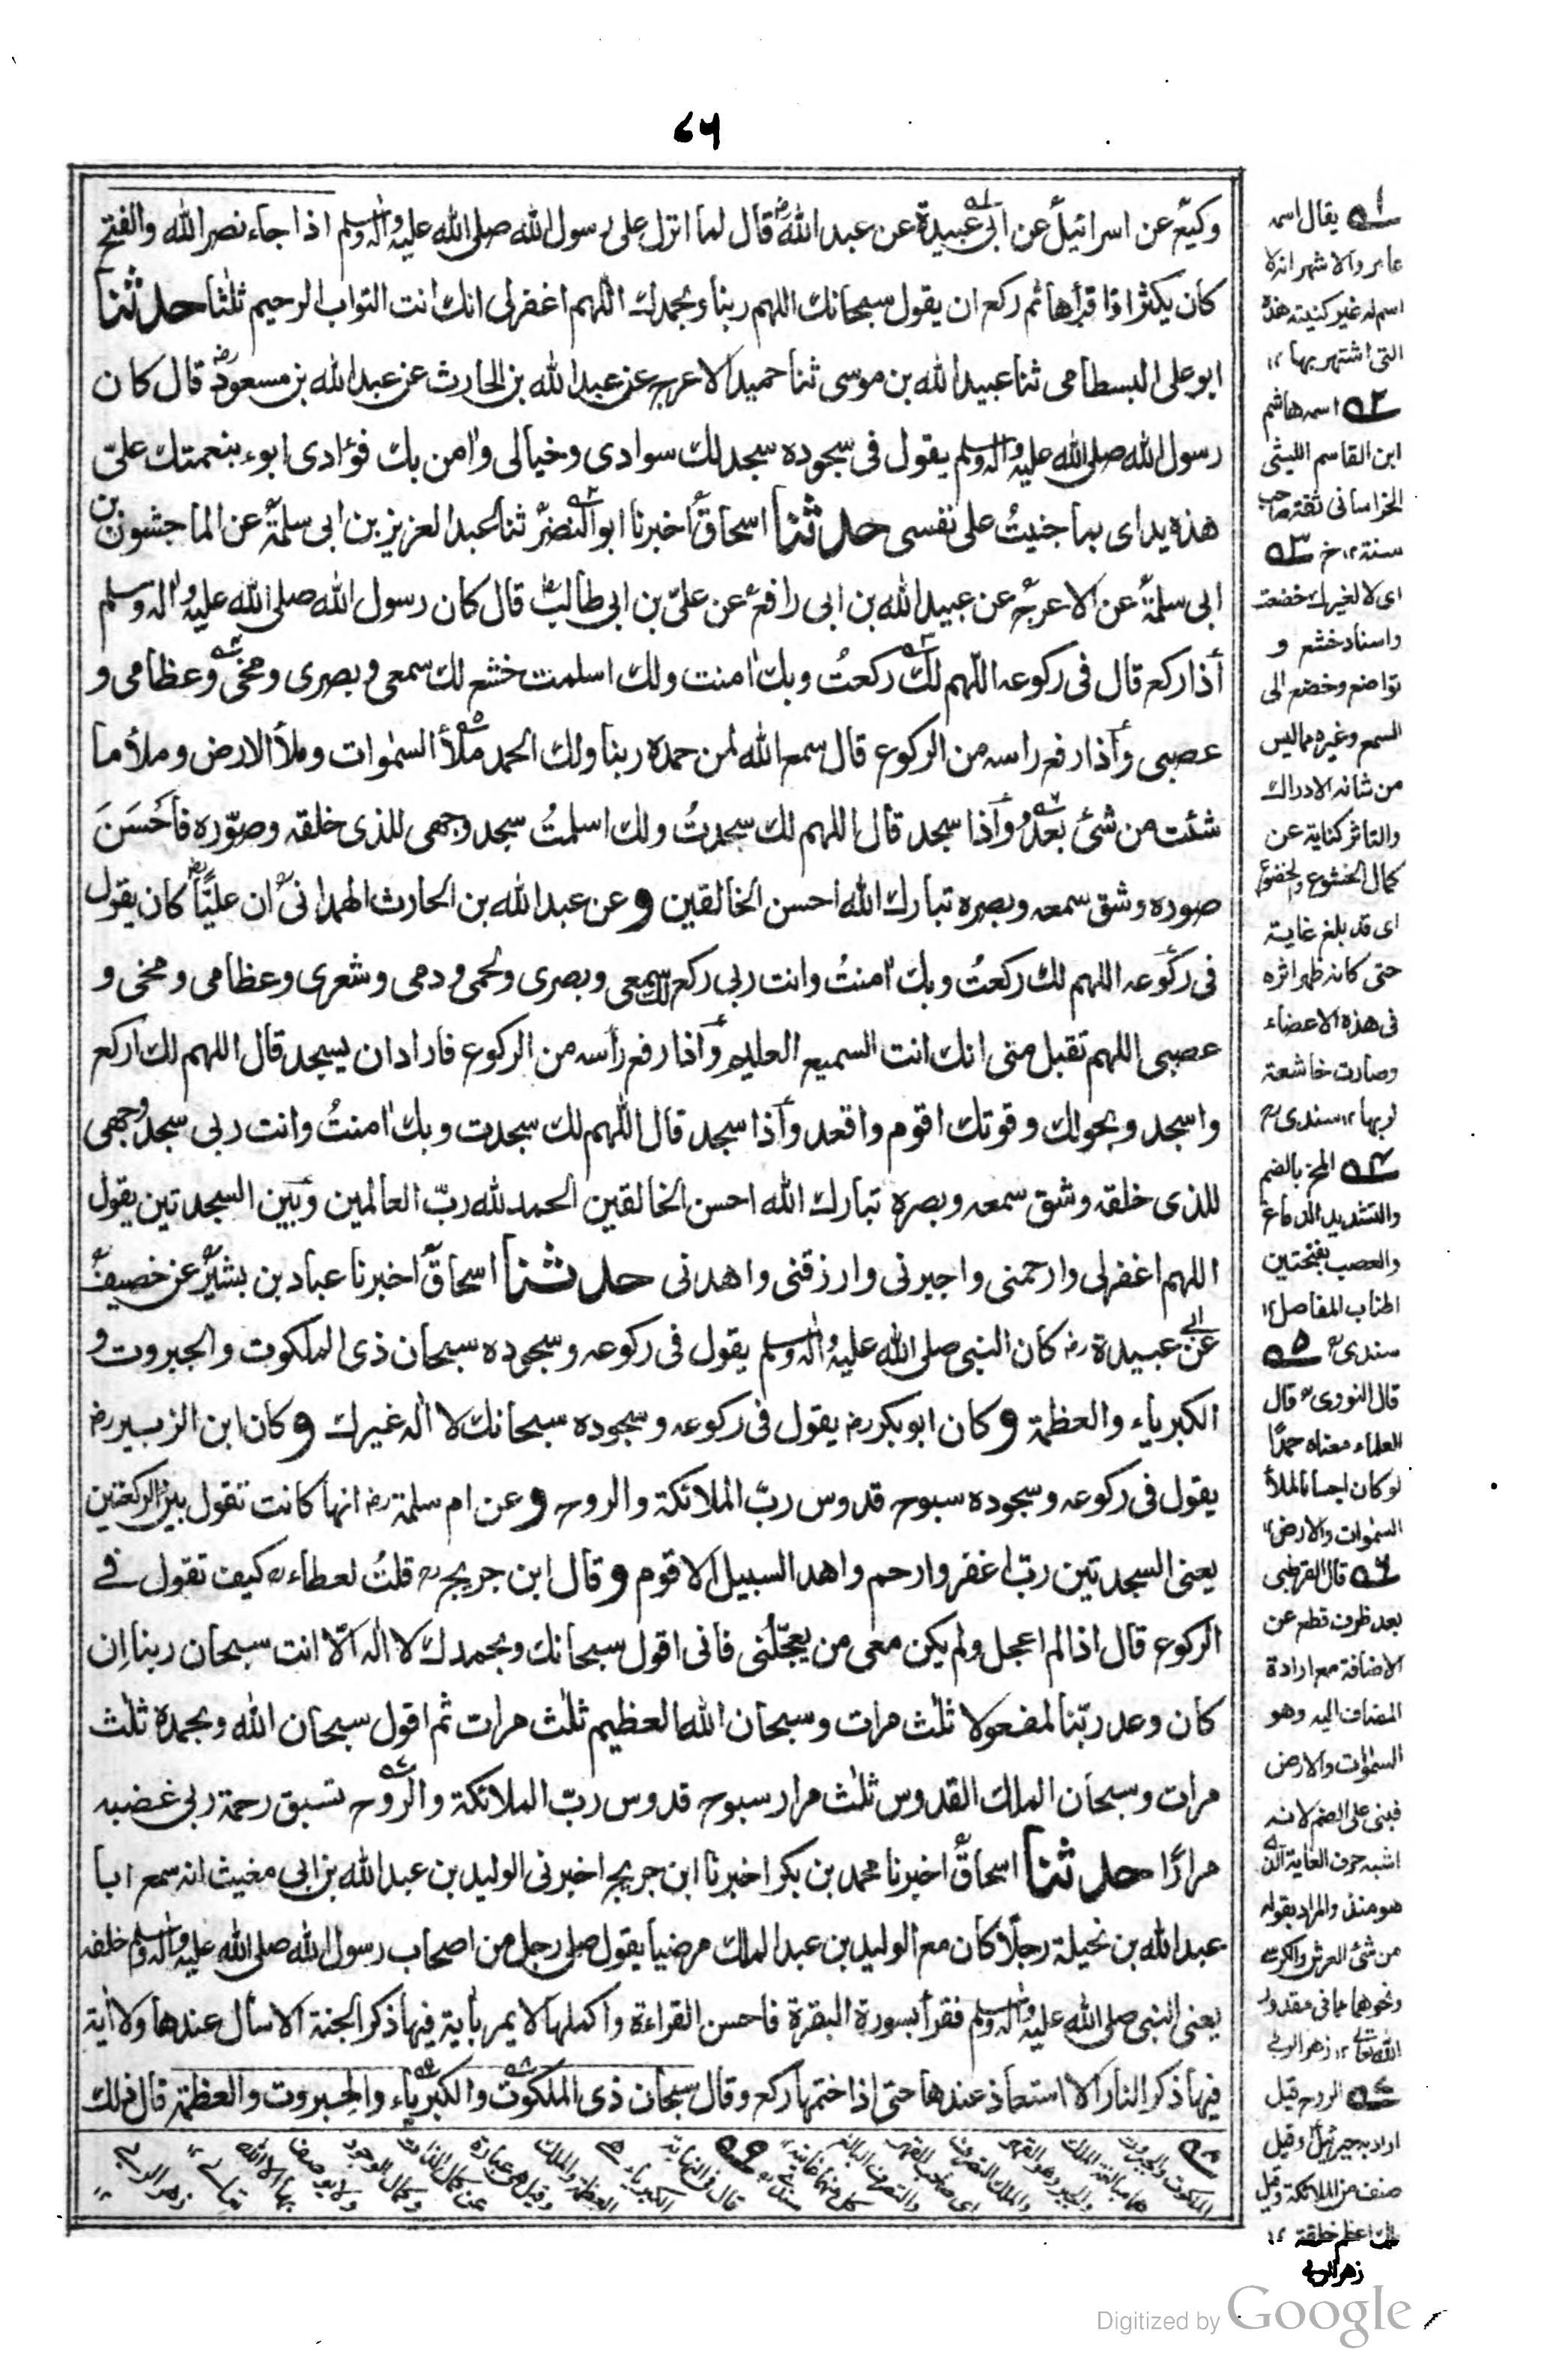 ٧٦
وكيع عن اسرائيل عن ابى عبيدة عن عبد الله رض قال لما انزل على رسول الله صلى الله عليه واله وسلم اذا جاء نصر الله والفتح
كان يكثر اذا قرأها ثم ركع ان يقول سبحانك اللهم ربنا وبحمدك اللهم اغفرلى انك انت التواب الرحيم ثلثا حدثنا
ابو على البسطامى ثنا عبيد الله بن موسى ثنا حميد الاعرج عن عبد الله بن الحارث عن عبد الله بن مسعود رض قال كان
رسول الله صلى الله عليه واله وسلم يقول فى سجوده سجد لك سوادى وخيالى وامن بك فؤادى ابوء بنعمتك علىّ
هذه يداى بما جنيتُ على نفسى حدثنا اسحاق اخبرنا ابو النضر ثنا عبد العزيز بن ابى سلمة عن الماجشون بن
ابى سلمة عن الاعرج عن عبيد الله بن ابى رافع عن على بن ابى طالب قال كان رسول الله صلى الله عليه واله وسلم
اذا ركع قال فى ركوعه اللهم لك ركعتُ وبك امنت ولك اسلمت خشع لك سمعى وبصرى ومخى وعظامى و
عصبى واذا رفع راسه من الركوع قال سمع الله لمن حمده ربنا ولك الحمد ملأ السمٰوات وملأ الارض وملأ ما
شئت من شئ بعدُ واذا سجد قال اللهم لك سجدتُ ولك اسلمتُ سجد وجهى للذى خلقه وصوّره فأحْسَنَ
صوره وشق سمعه وبصره تبارك الله احسن الخالقين و عن عبد الله بن الحارث الهمدانى ان عليّا رض كان يقول
فى ركوعه اللهم لك ركعتُ وبك امنتُ وانت ربى ركع لك سمعى وبصرى ولحمى ودمى وشعرى وعظامى ومخى و
عصبى اللهم تقبل منى انك انت السميع العليم واذا رفع رأسه من الركوع فاراد ان يسجد قال اللهم لك اركع
واسجد وبحولك وقوتك اقوم واقعد واذا سجد قال اللهم لك سجدت وبك امنتُ وانت ربى سجد وجهى
للذى خلقه وشق سمعه وبصره تبارك الله احسن الخالقين الحمد لله ربّ العالمين وبين السجدتين يقول
اللهم اغفرلى وارحمنى واجبرنى وارزقنى واهدنى حدثنا اسحاق اخبرنا عباد بن بشير عن خصيف
عن ابى عبيدة رض كان النبى صلى الله عليه واله وسلم يقول فى ركوعه وسجوده سبحان ذى الملكوت والجبروت و
الكبرياء والعظمة و كان ابو بكر رض يقول فى ركوعه وسجوده سبحانك لا اله غيرك و كان ابن الزبير رض
يقول فى ركوعه وسجوده سبوح قدوس ربّ الملائكة والروح و عن ام سلمة رض انها كانت تقول بين الركعتين
يعنى السجدتين ربّ اغفر وارحم واهد السبيل الاقوم و قال ابن جريج قلتُ لعطاء كيف تقول فى
الركوع قال اذا لم اعجل ولم يكن معى من يعجّلنى فانى اقول سبحانك وبحمدك لا اله الّا انت سبحان ربنا اِن
كان وعد ربّنا لمفعولا ثلٰث مرات وسبحان الله العظيم ثلٰث مرات ثم اقول سبحان الله وبحمده ثلٰث
مرات وسبحان الملك القدوس ثلٰث مرار سبوح قدوس ربّ الملائكة والروح تسبق رحمة ربى غضبه
مرارًا حدثنا اسحاق اخبرنا محمد بن بكر اخبرنا ابن جريج اخبرنى الوليد بن عبد الله بن ابى مغيث انه سمع ابا
عبد الله بن نحيلة رجلا كان مع الوليد بن عبد الملك مرضيا يقول صلى رجل من اصحاب رسول الله صلى الله عليه واله وسلم خلفه
يعنى النبى صلى الله عليه واله وسلم فقرأ بسورة البقرة فاحسن القراءة واكملها لا يمر باية فيها ذكر الجنة الا سأل عندها ولا اية
فيها ذكر النار الا استعاذ عندها حتى اذا ختمها ركع وقال سبحان ذى الملكوت والكبرياء والجبروت والعظمة قال ذلك
١ه يقال اسمه
عامر والاشهر انه لا
اسم له غير كنيته هذه
التى اشتهر بها ١٢
٢ه اسمه هاشم
ابن القاسم الليثى
الخراسانى ثقة صاحب
سنة ١٢ خ ٣ه
اى لا لغيرك خضعت
واسناد خشع و
تواضع وخضع الى
السمع وغيره مما ليس
من شانه الادراك
والتاثر كناية عن
كمال الخشوع والخضوع
اى قد بلغ غايته
حتى كانه ظهر اثره
فى هذه الاعضاء
وصارت خاشعة
لربها ١٢ سندى رح
٤ه المخ بالضم
والتشديد الدماغ
والعصب بفتحتين
اطناب المفاصل ١٢
سندى ٥ه
قال النووى قال
العلماء معناه حمدًا
لو كان اجساما لملأ
السمٰوات والارض ١٢
٦ه قال القرطبى
بعد ظرف قطع عن
الاضافة مع ارادة
المضاف اليه وهو
السمٰوات والارض
فبنى على الضم لانه
اشبه حرف الغاية الذى
هو منذ والمراد بقوله
من شئ العرش والكرسى
ونحوهما مما فى مقدور
الله تعالى ١٢ زهر الربى
٧ه الروح قيل
اراد به جبرئيل وقيل
صنف من الملائكة وقيل
ملك اعظم خلقة ١٢
زهر الربى
٨ه
الملكوت والجبروت
٩ه
قال فى النهاية
الكبرياء
العظمة والملك
وقيل هى عبارة
عن كمال الذات
وكمال الوجود
ولا يوصف
بها الا الله
تعالى ١٢
زهر الربى
Digitized by Google